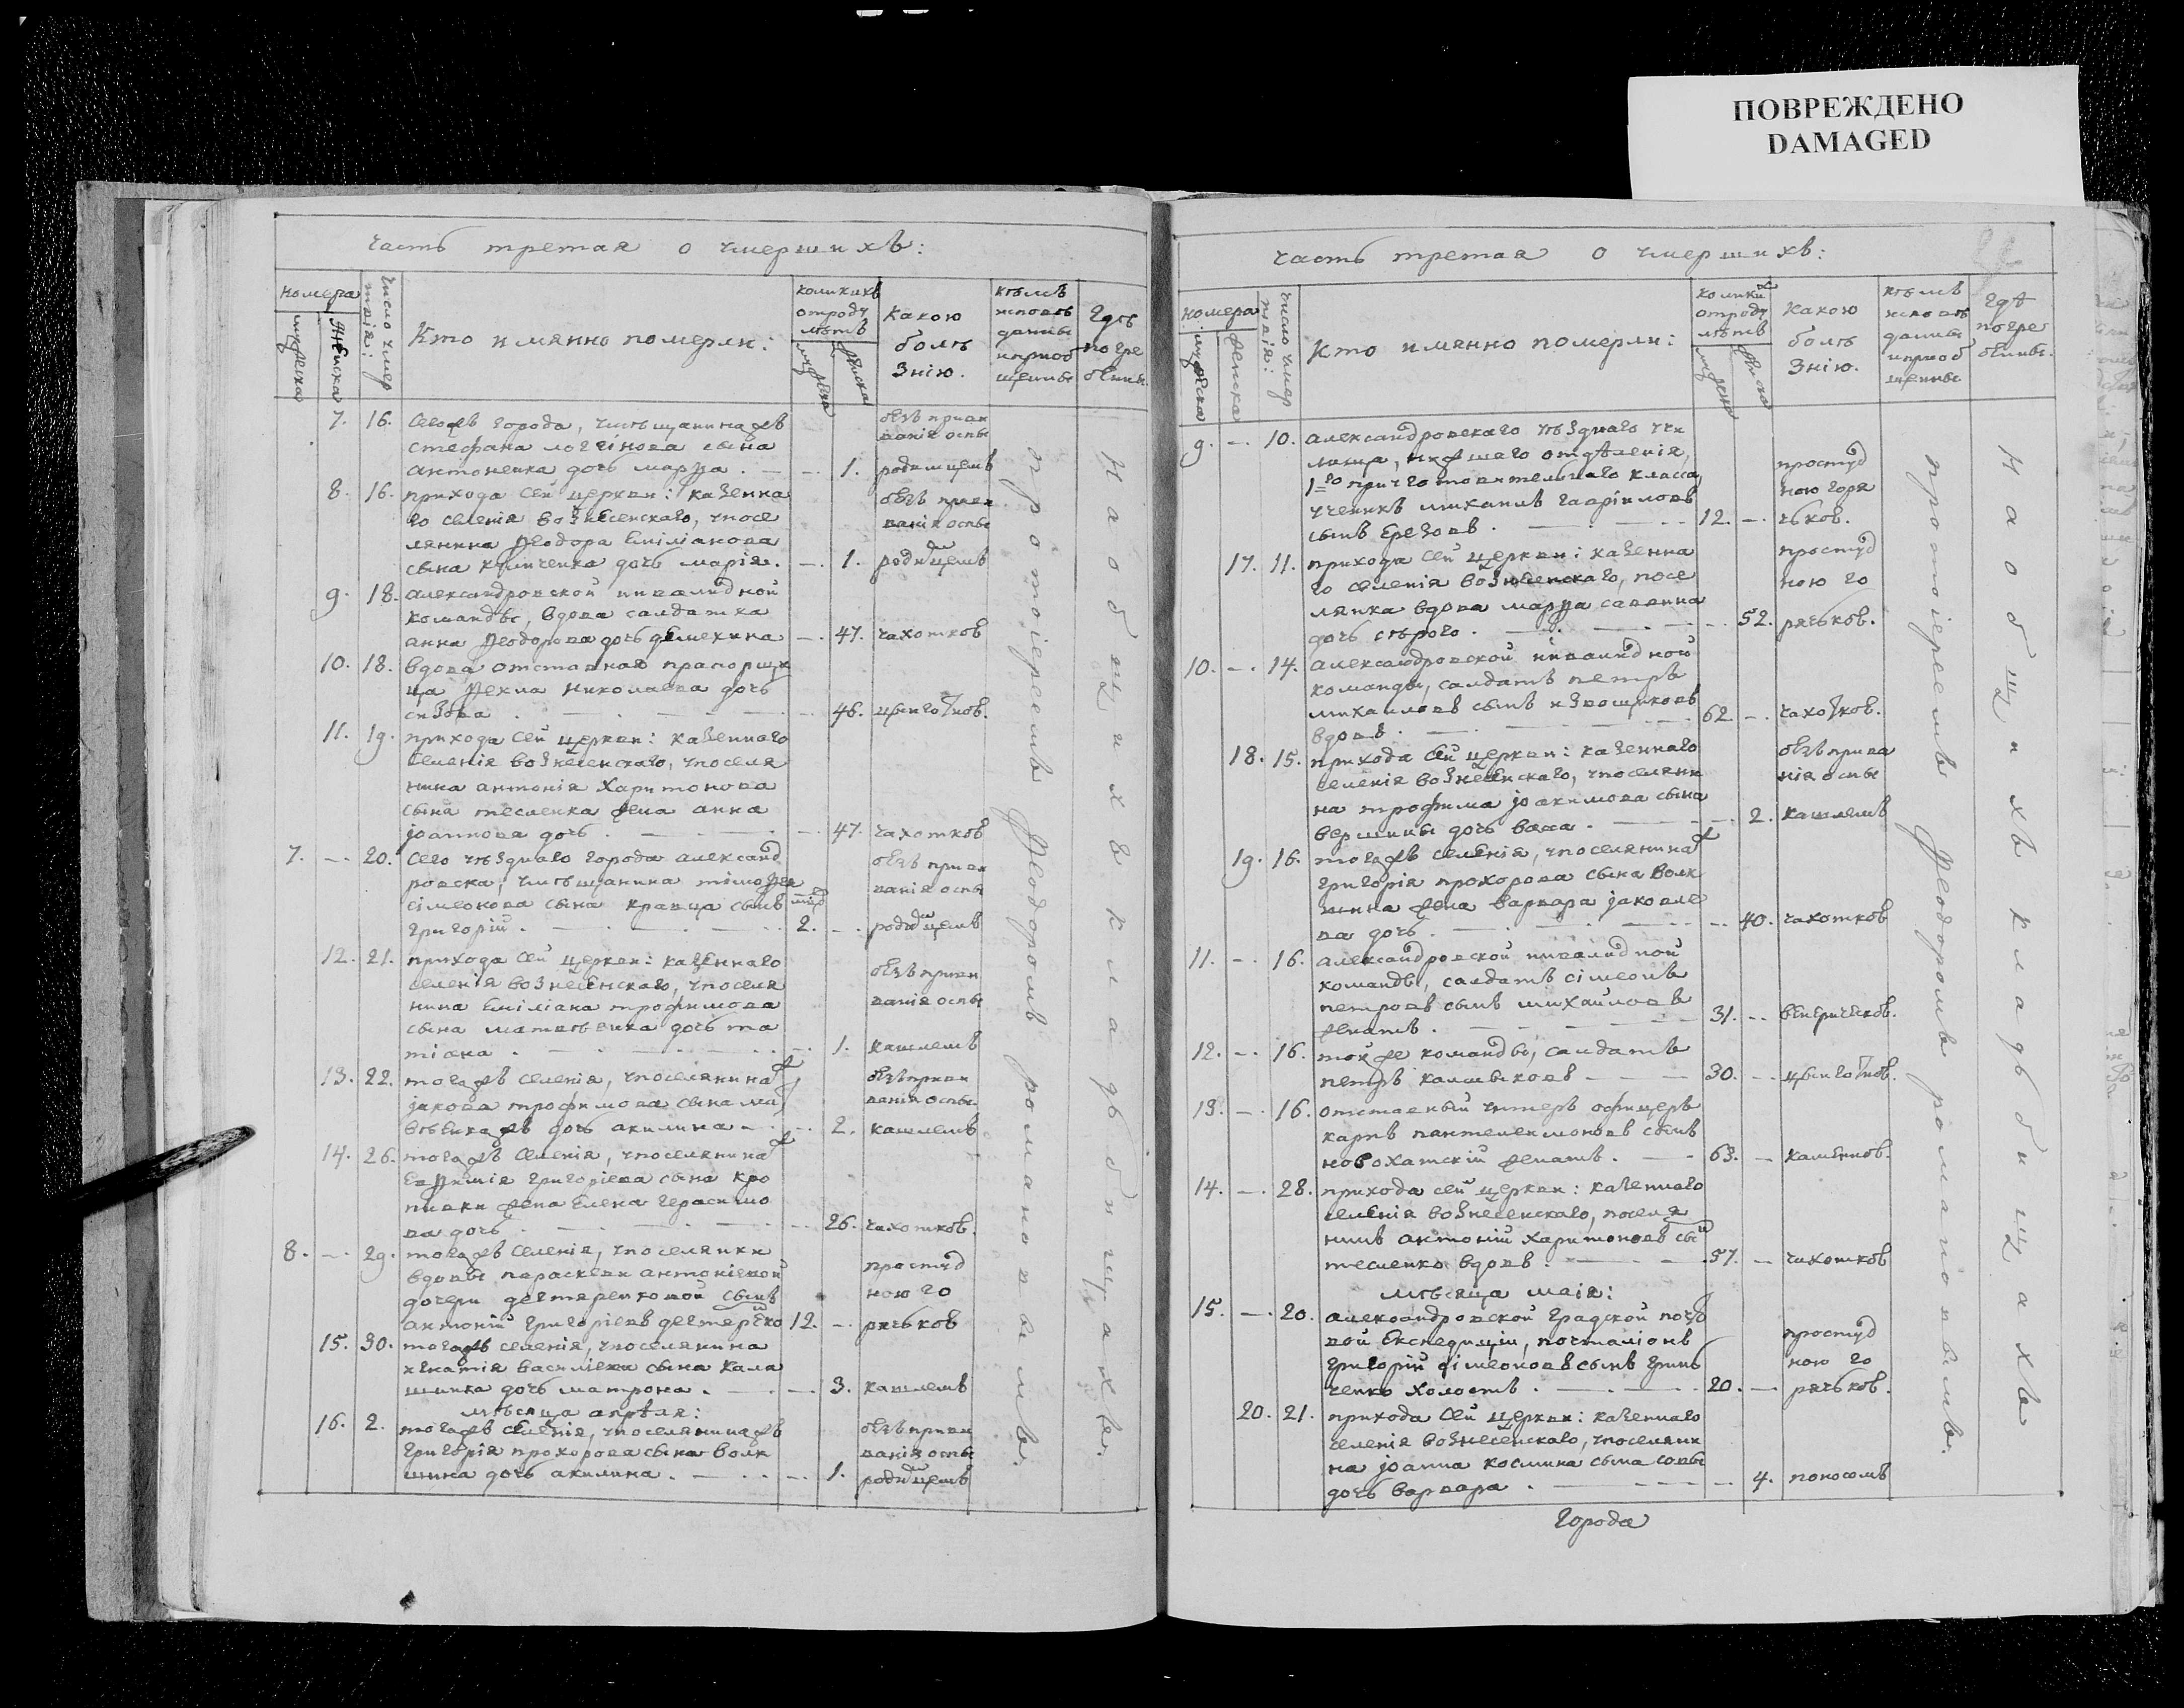 ПОВРЕЖДЕНО
DAMAGED
часть третая о умершихъ:
номера
мужеска
женска
число умер
твія:
Кто имянно померли:
коликихъ
отроду
лѣтъ
мужеска
женска
Какою
болѣ
знію.
кѣмъ
исповѣ
даны
и приоб
щены
Гдѣ
погре
бены.
7. 16. сегожъ города, умѣщанинажъ
стефана логгінова сына
антоненка дочь марѳа . — — 1.
безъ приви
ванія оспы
родимцемъ
8. 16. прихода сей церкви: казенна
го селенія вознесенскаго, упосе
лянина Ѳеодора Емиліанова
сына дочь марія. — 1.
безъ приви
ванія оспы
родимцемъ
9. 18. александровской инвалидной
команды, вдова салдатка
анна Ѳеодорова дочь демехина — 47. чахоткою
10. 18. вдова отставная прапорщи
ца Ѳекла Николаева дочь
сизова . — 46. цынготною.
11. 19. прихода сей церкви: казеннаго
селенія вознесенскаго, упоселя
нина антонія Харитонова
сына тесленка жена анна
іоаннова дочь . — 47. чахоткою
7. — 20. сего уѣзднаго города александ
ровска, умѣщанина тімоѳея
сімеонова сына кравца сынъ
григорій . — 2. —
безъ приви
ванія оспы
родимцемъ
12. 21. прихода сей церкви: казеннаго
селенія вознесенскаго, упоселя
нина Емиліана трофимова
сына матвѣенка дочь та
тіана . — 1.
безъ приви
ванія оспы
кашлемъ
13. 22. тогожъ селенія, упоселянина
іакова трофимова сына ма
вѣенкажъ дочь акилина — 2.
безъ приви
ванія оспы.
кашлемъ
14. 26. тогожъ селенія, упоселянина
Евѳимія григоріева сына кро
пивки жена Елена герасимо
ва дочь . — 26. чахоткою.
8. — 29. тогожъ селенія, упоселянки
вдовы параскеви антоніевой
дочери дегтяренковой сынъ
антоній григоріевъ дегтеренко 12. —
простуд
ною го
рячькою
15. 30. тогожъ селенія, упоселянина
игнатія василіева сына кала
шника дочь матрона . — 3. кашлемъ
мѣсяца апрѣля:
16. 2. тогожъ селенія, упоселянинажъ
григорія прохорова сына волк
шина дочь акилина . — 1.
безъ приви
ванія оспы
родимцемъ
протоіереемъ Ѳеодоромъ романовымъ.
На общихъ кладбищахъ.
часть третая о умершихъ:
номера
мужеска
женска
число умер
твія:
Кто имянно померли:
колики
отроду
лѣтъ
мужеска
женска
Какою
болѣ
знію.
кѣмъ
исповѣ
даны
и приоб
щены
гдѣ
погре
бены.
9. — 10. александровскаго уѣзднаго учи
лища, нижшаго отдѣленія,
1го приуготовительнаго класса
ученикъ михаилъ гавріиловъ
сынъ Ерезовъ . — 12. —
простуд
ною горя
чькою.
17. 11. прихода сей церкви: казенна
го селенія вознесенскаго, посе
лянка вдова марѳа саввина
дочь сѣрого . — 52.
простуд
ною го
рячькою.
10. — 14. александровской инвалидной
команды, салдатъ петръ
михаиловъ сынъ извощиковъ
вдовъ . — 62. — чахоткою.
18. 15. прихода сей церкви: казеннаго
селенія вознесенскаго, упоселяни
на трофима іоакимова сына
вершины дочь васса . — 2.
безъ прива
нія оспы
кашлемъ
19. 16. тогожъ селенія, упоселянина
григорія прохорова сына волк
шина жена варвара іаковле
ва дочь . — 40. чахоткою
11. — 16. александровской инвалидной
команды, салдатъ сімеонъ
петровъ сынъ михайловъ
женатъ . — 31. — венерическою.
12. — 16. тойже команды, салдатъ
петръ калмыковъ — 30. — цынготною.
13. — 16. отставный унтеръ офицеръ
карпъ пантелеимоновъ сынъ
новохатскій женатъ . — 63. — каменною.
14. — 28. прихода сей церкви: казеннаго
селенія вознесенскаго, поселя
нинъ антоній харитоновъ сынъ
тесленко вдовъ . — 57. — чахоткою
мѣсяца маія:
15. — 20. александровской градской почто
вой Експедиціи, почталіонъ
григорій сімеоновъ сынъ грин
ченко холостъ . — 20. —
простуд
ною го
рячькою.
20. 21. прихода сей церкви: казеннаго
селенія вознесенскаго, упоселяни
на іоанна космина сына совы
дочь варвара . — 4. поносомъ
протоіереемъ Ѳеодоромъ романовымъ.
На общихъ кладбищахъ
города